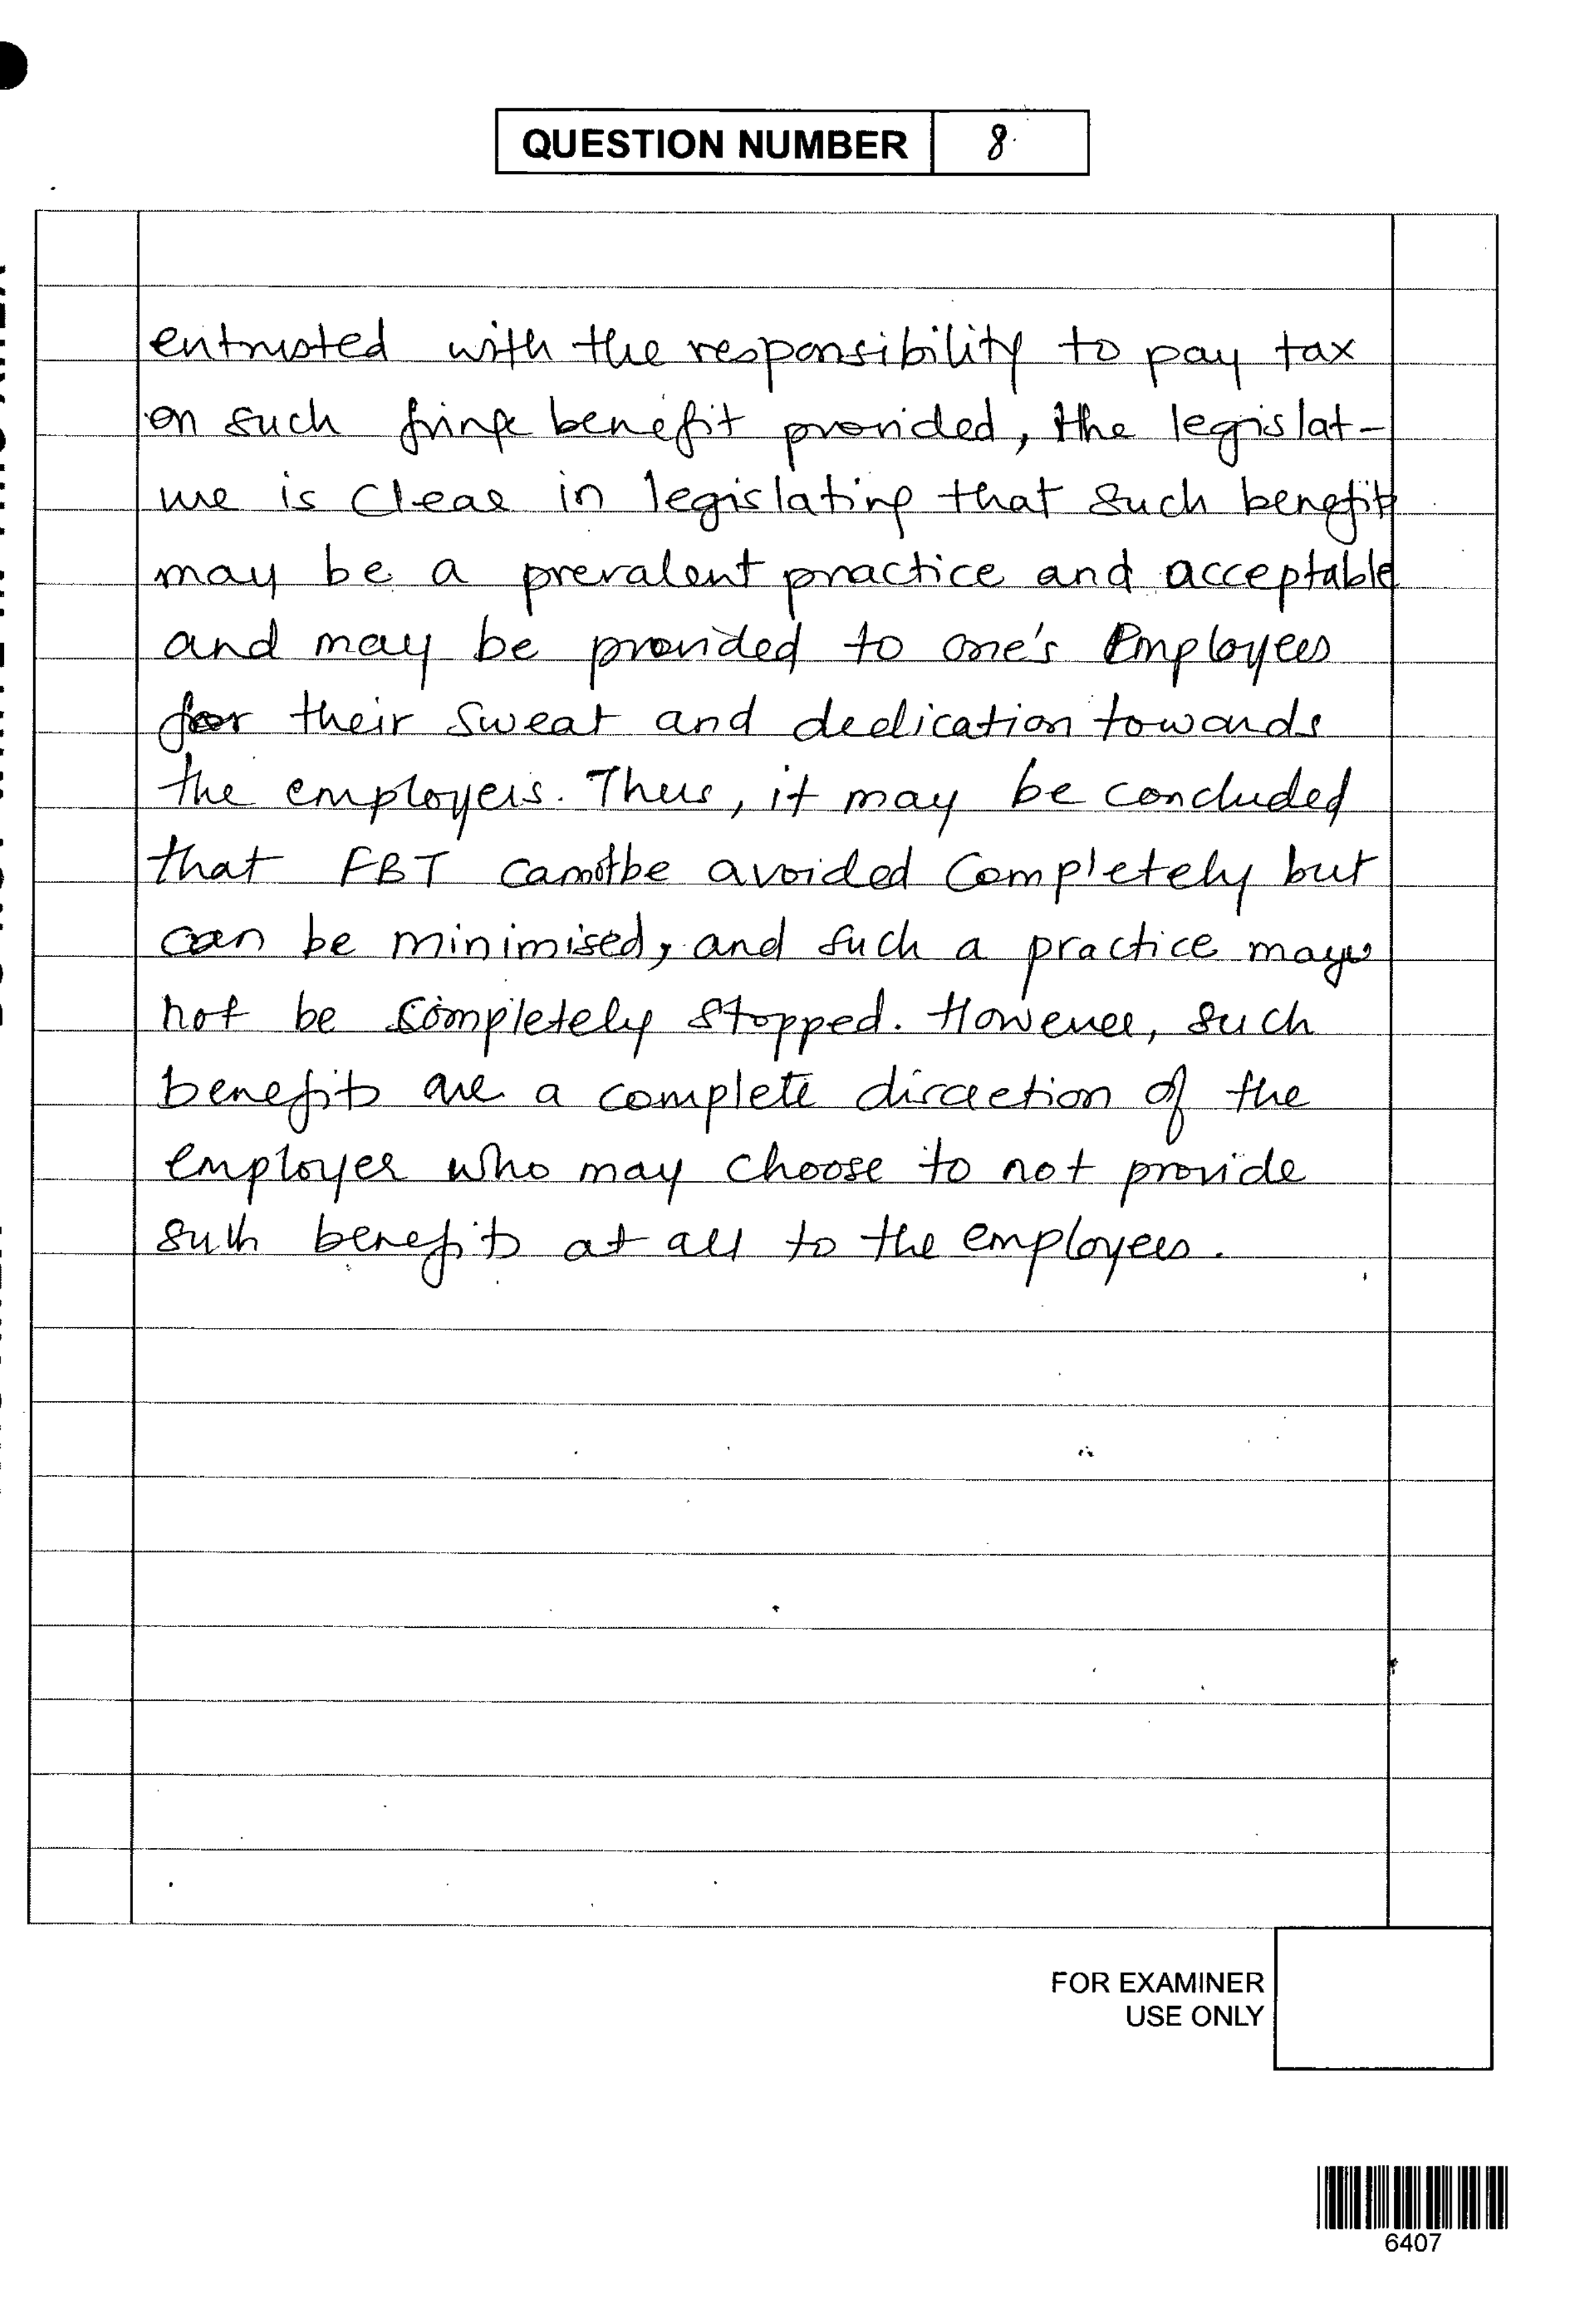 QUESTION NUMBER 8.
entrusted with the responsibility to pay tax
on such fringe benefit provided, the legislat-
ure is clear in legislating that such benefits
may be a prevalent practice and acceptable
and may be provided to one's employees
for their sweat and dedication towards
the employers. Thus, it may be concluded
that FBT cannot be avoided completely but
can be minimised, and such a practice may
not be completely stopped. However, such
benefits are a complete discretion of the
employer who may choose to not provide
such benefits at all to the employees.
FOR EXAMINER
USE ONLY
6407